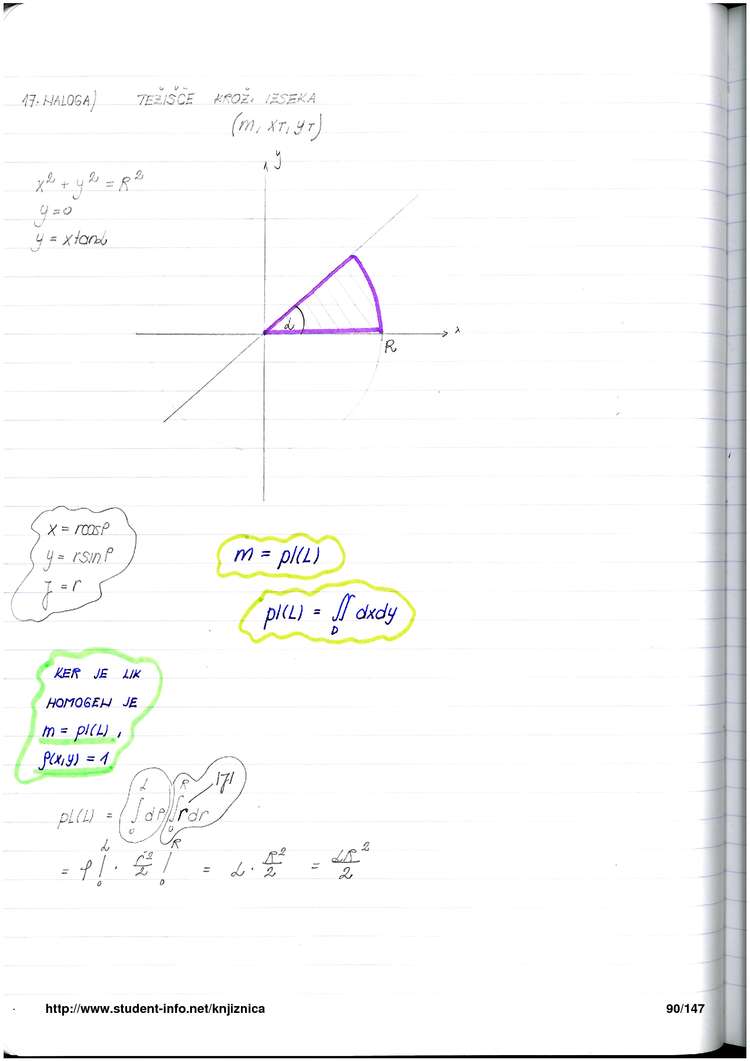 17. NALOGA) TEŽIŠČE KROŽ. IZSEKA
(m, xT, yT)
x² + y² = R²
y = 0
y = x tanα
y
α
x
R
x = r cosφ
y = r sinφ
J = r
m = pl(L)
pl(L) = ∬_D dxdy
KER JE LIK
HOMOGEN JE
m = pl(L),
ρ(x,y) = 1
pl(L) = ∫₀^α dφ ∫₀^R r dr |J|
= φ |₀^α · r²/2 |₀^R = α · R²/2 = αR²/2
http://www.student-info.net/knjiznica 90/147